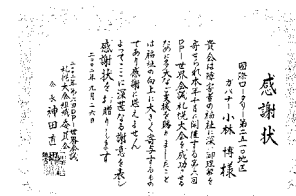 感謝状
国際ロータリー第二五一〇地区
ガバナー 小林 博様
貴会は障害者の福祉に深い理解を
寄せられ本年十月に開催する第六回
DPI世界会議札幌大会を成功させる
ために多大なご支援を賜りましたこと
は福祉の向上に大きく寄与するもの
であり感謝に堪えません
よってここに深甚なる謝意を表し
感謝状をお贈りします
二〇〇二年九月二六日
二〇〇二年第六回DPI世界会議
札幌大会組織委員会
会長 神田直